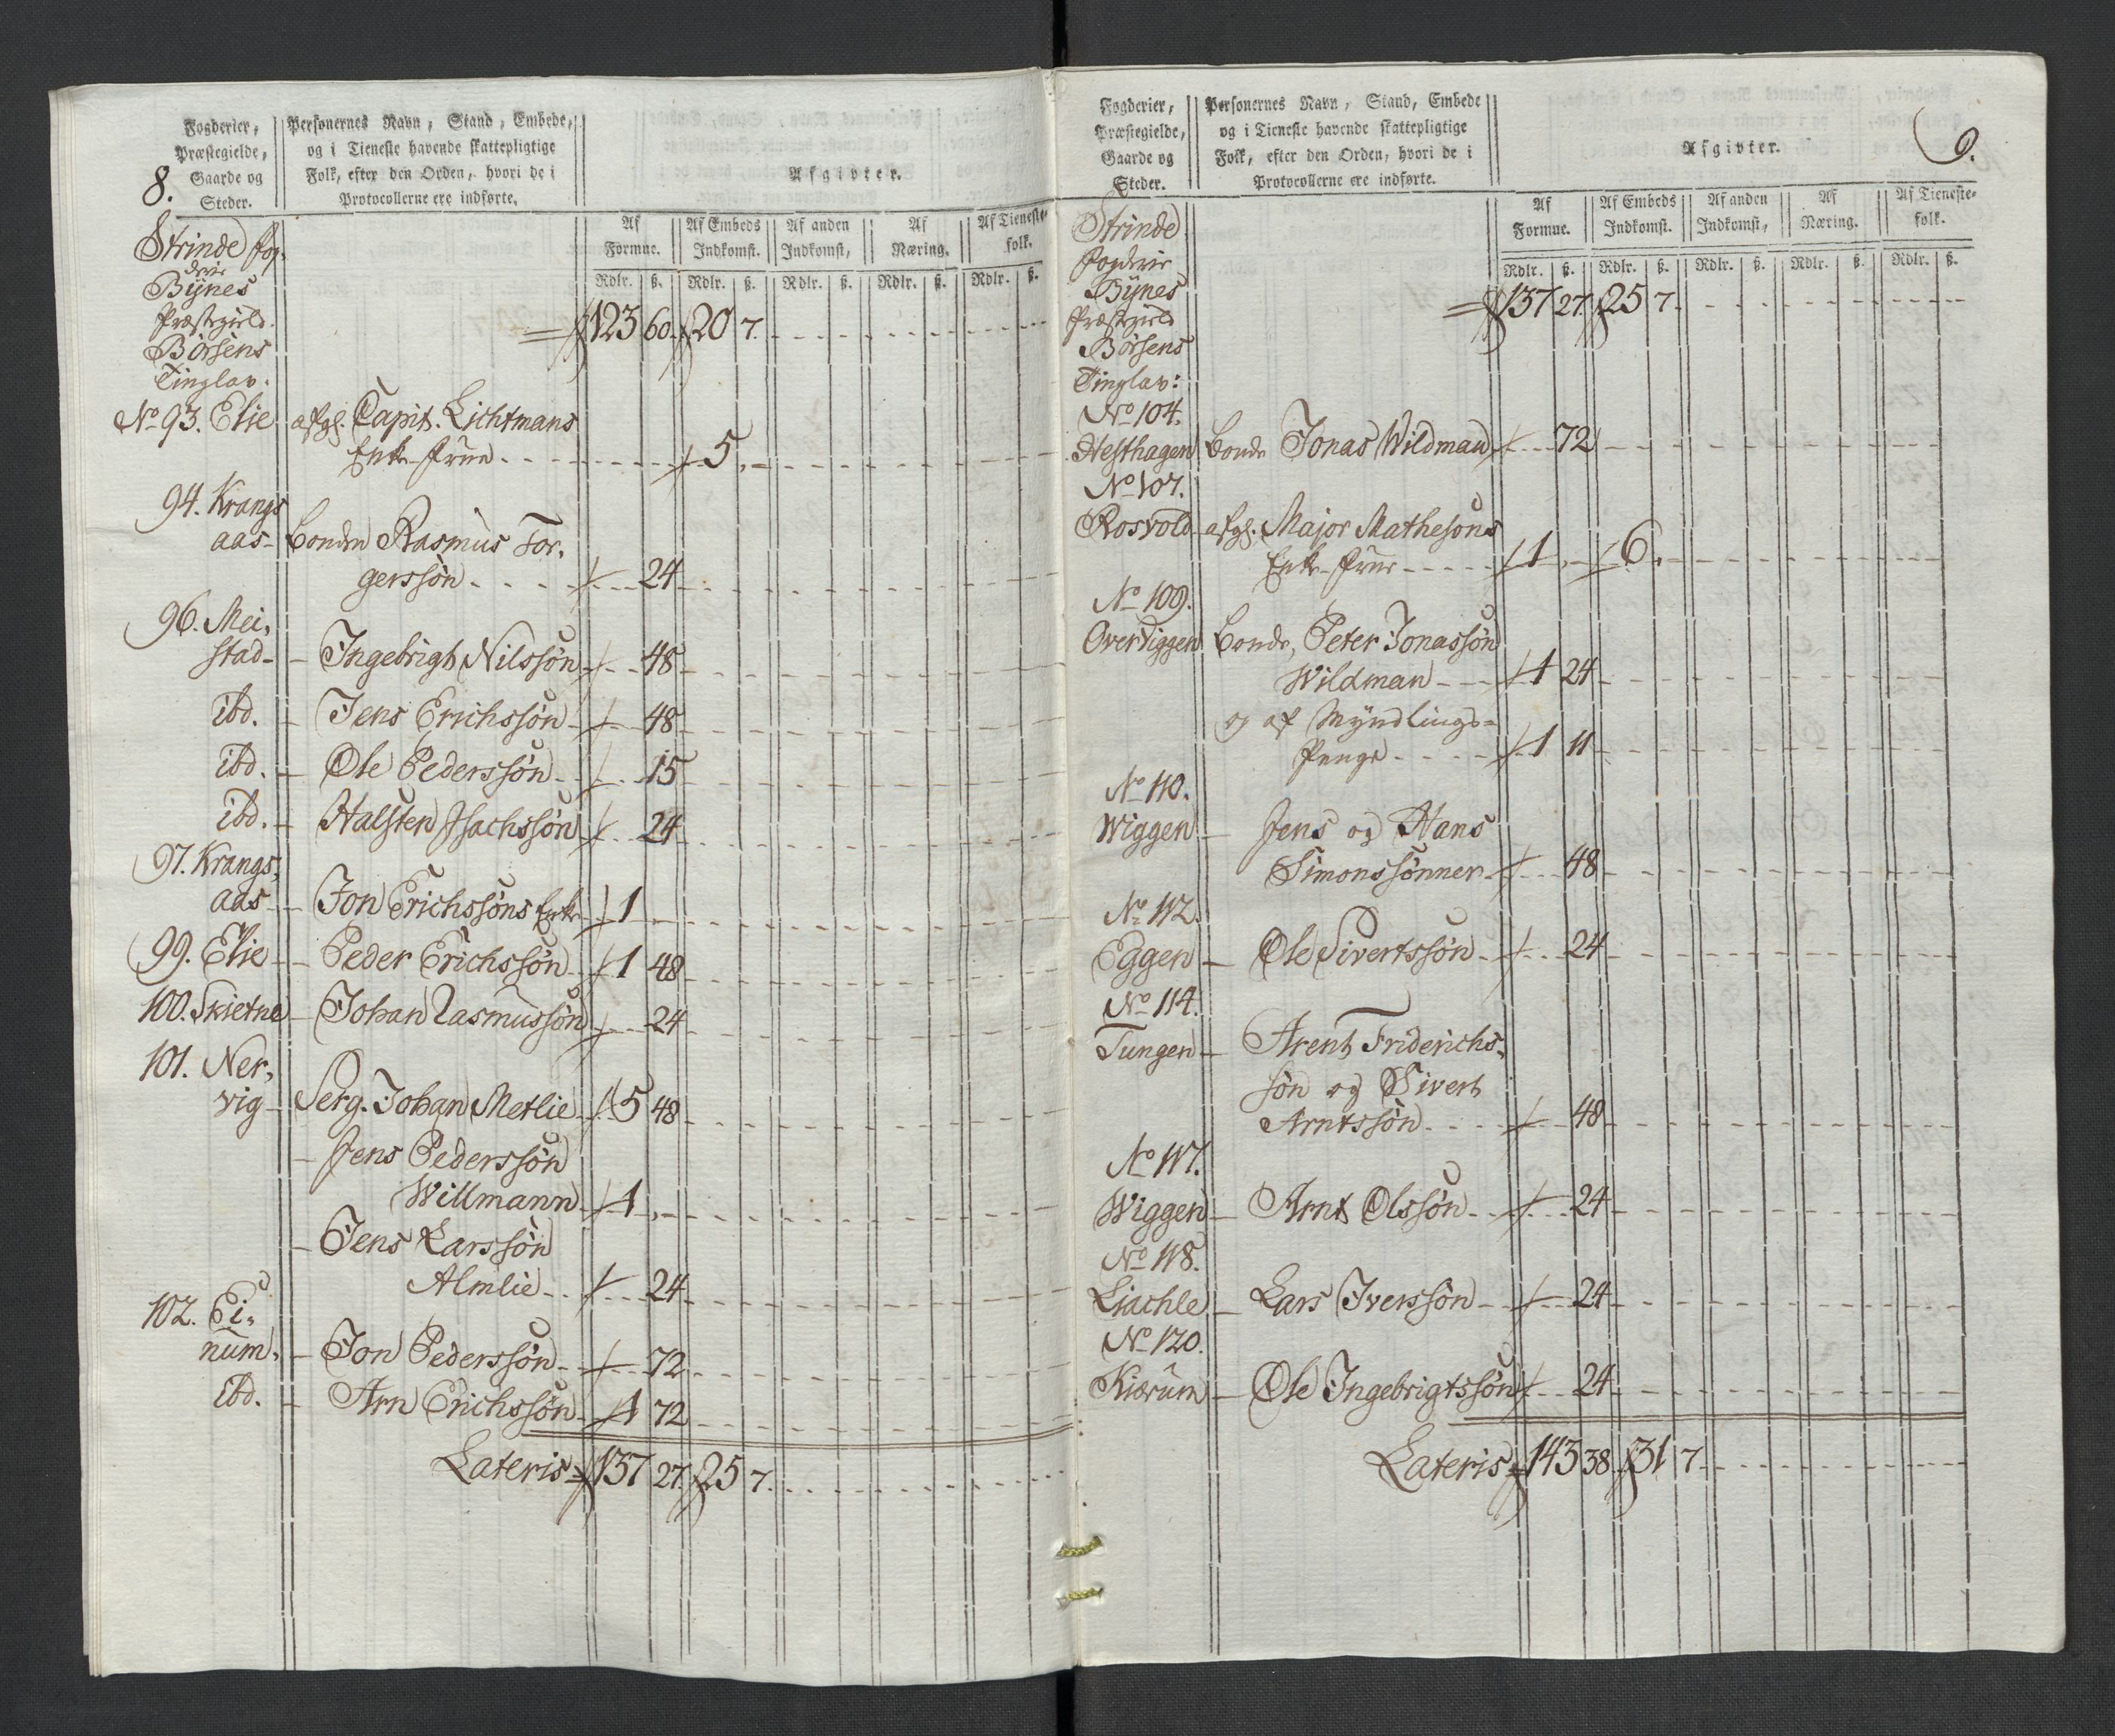 8.
Fogderier,
Præstegielde,
Gaarde og
Steder.
Personernes Navn, Stand, Embede,
og i Tieneste havende skattepligtige
Folk, efter den Orden, hvori de i
Protocollerne ere indførte.
Afgivter.
Af Formue.
Af Embeds Indkomst.
Af anden Indkomst,
Af Næring.
Af Tieneste folk.
Rdlr. ß. Rdlr. ß. Rdlr. ß. Rdlr. ß. Rdlr. ß.
Strinde Fog-
derie
Bÿnes
Præstegield.
Børsens
Tinglav.
123 60. 20 7.
No 93. Elie afgl. Capit. Lichtmans
Enke-Frue 5.
94. Krangs
aas- Bonden Rasmus Tor-
gerssøn 24
96. Mei-
stad- - Ingebrigt Nilssøn 48
ibd. - Jens Erichssøn 48
ibd. - Ole Pederssøn 15
ibd. - Halsten Isachssøn 24
97. Krangs-
aas - Jon Erichssøns Enke 1
99. Elie - Peder Erichssøn 1 48
100. Skietne - Johan Rasmussøn 24
101. Ner-
vig - Serg. Johan Metlie 5 48
- Jens Pederssøn
Willmann 1
- Jens Larssøn
Almlie 24
102. Ei-
num. - Jon Pederssøn 72
ibd. - Arn Erichssøn 1 72
Lateris 137 27. 25 7.
9.
Fogderier,
Præstegielde,
Gaarde og
Steder.
Personernes Navn, Stand, Embede
og i Tieneste havende skattepligtige
Folk, efter den Orden, hvori de i
Protocollerne ere indførte.
Afgivter.
Af Formue.
Af Embeds Indkomst.
Af anden Indkomst,
Af Næring.
Af Tieneste-folk.
Rdlr. ß. Rdlr. ß. Rdlr. ß. Rdlr. ß. Rdlr. ß.
Strinde
Fogderie
Bÿnes
Præstegield
Børsens
Tinglav:
137 27. 25 7.
No 104.
Hesthagen Bonde Jonas Wildman 72
No 107.
Rosvold afgl. Major Mathesons
Enke-Frue 1 6.
No 109.
Overviggen Bonde, Peter Jonassøn
Wildman 1 24
og af Mÿndlings-
Penge 1 11
No 110.
Wiggen - Jens og Hans
Simonssønner 48
No 112.
Eggen - Ole Sivertssøn 24
No 114.
Tungen - Arent Friderichs-
søn og Sivert
Arntssøn 48
No 117.
Wiggen - Arnt Olssøn 24
No 118.
Liachle - Lars Iverssøn 24
No 120.
Kiærum - Ole Ingebrigtssøn 24
Lateris 143 38. 31 7.